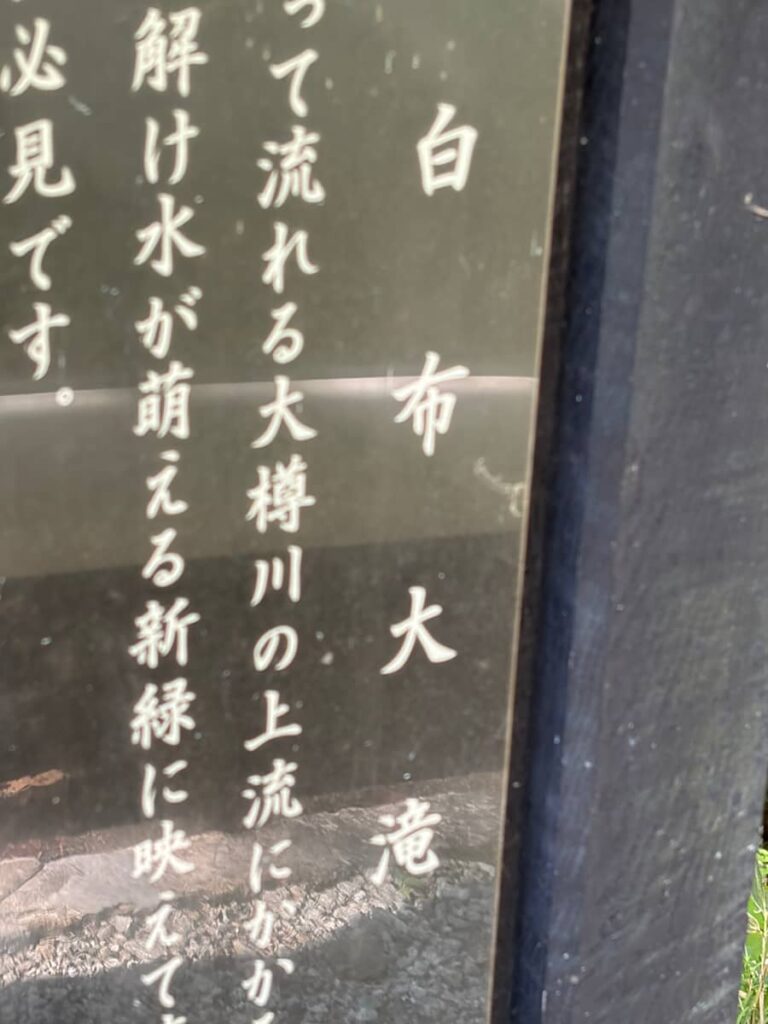 白布大滝
って流れる大樽川の上流にかかる
解け水が萌える新緑に映えて
必見です。